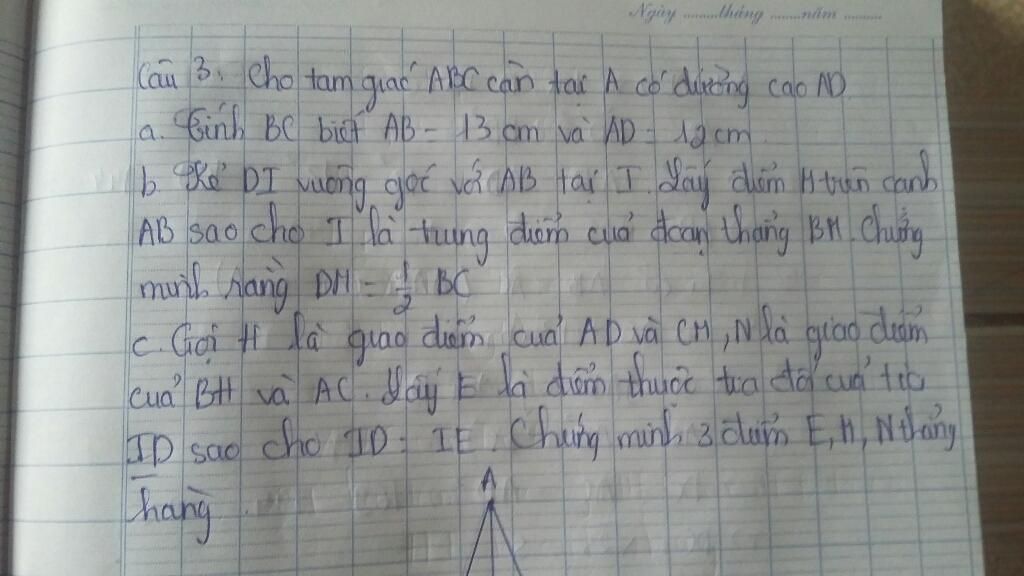 Ngày ........tháng .......năm .........
Câu 3. Cho tam giác ABC cân tại A có đường cao AD
a. Tính BC biết AB = 13 cm và AD = 12 cm
b. Kẻ DI vuông góc với AB tại I. Lấy điểm M trên cạnh
AB sao cho I là trung điểm của đoạn thẳng BM. Chứng
minh rằng DM = 1/2 BC
c. Gọi H là giao điểm của AD và CM, N là giao điểm
của BH và AC. Lấy E là điểm thuộc tia đối của tia
ID sao cho ID = IE. Chứng minh 3 điểm E, M, N thẳng
hàng.
A